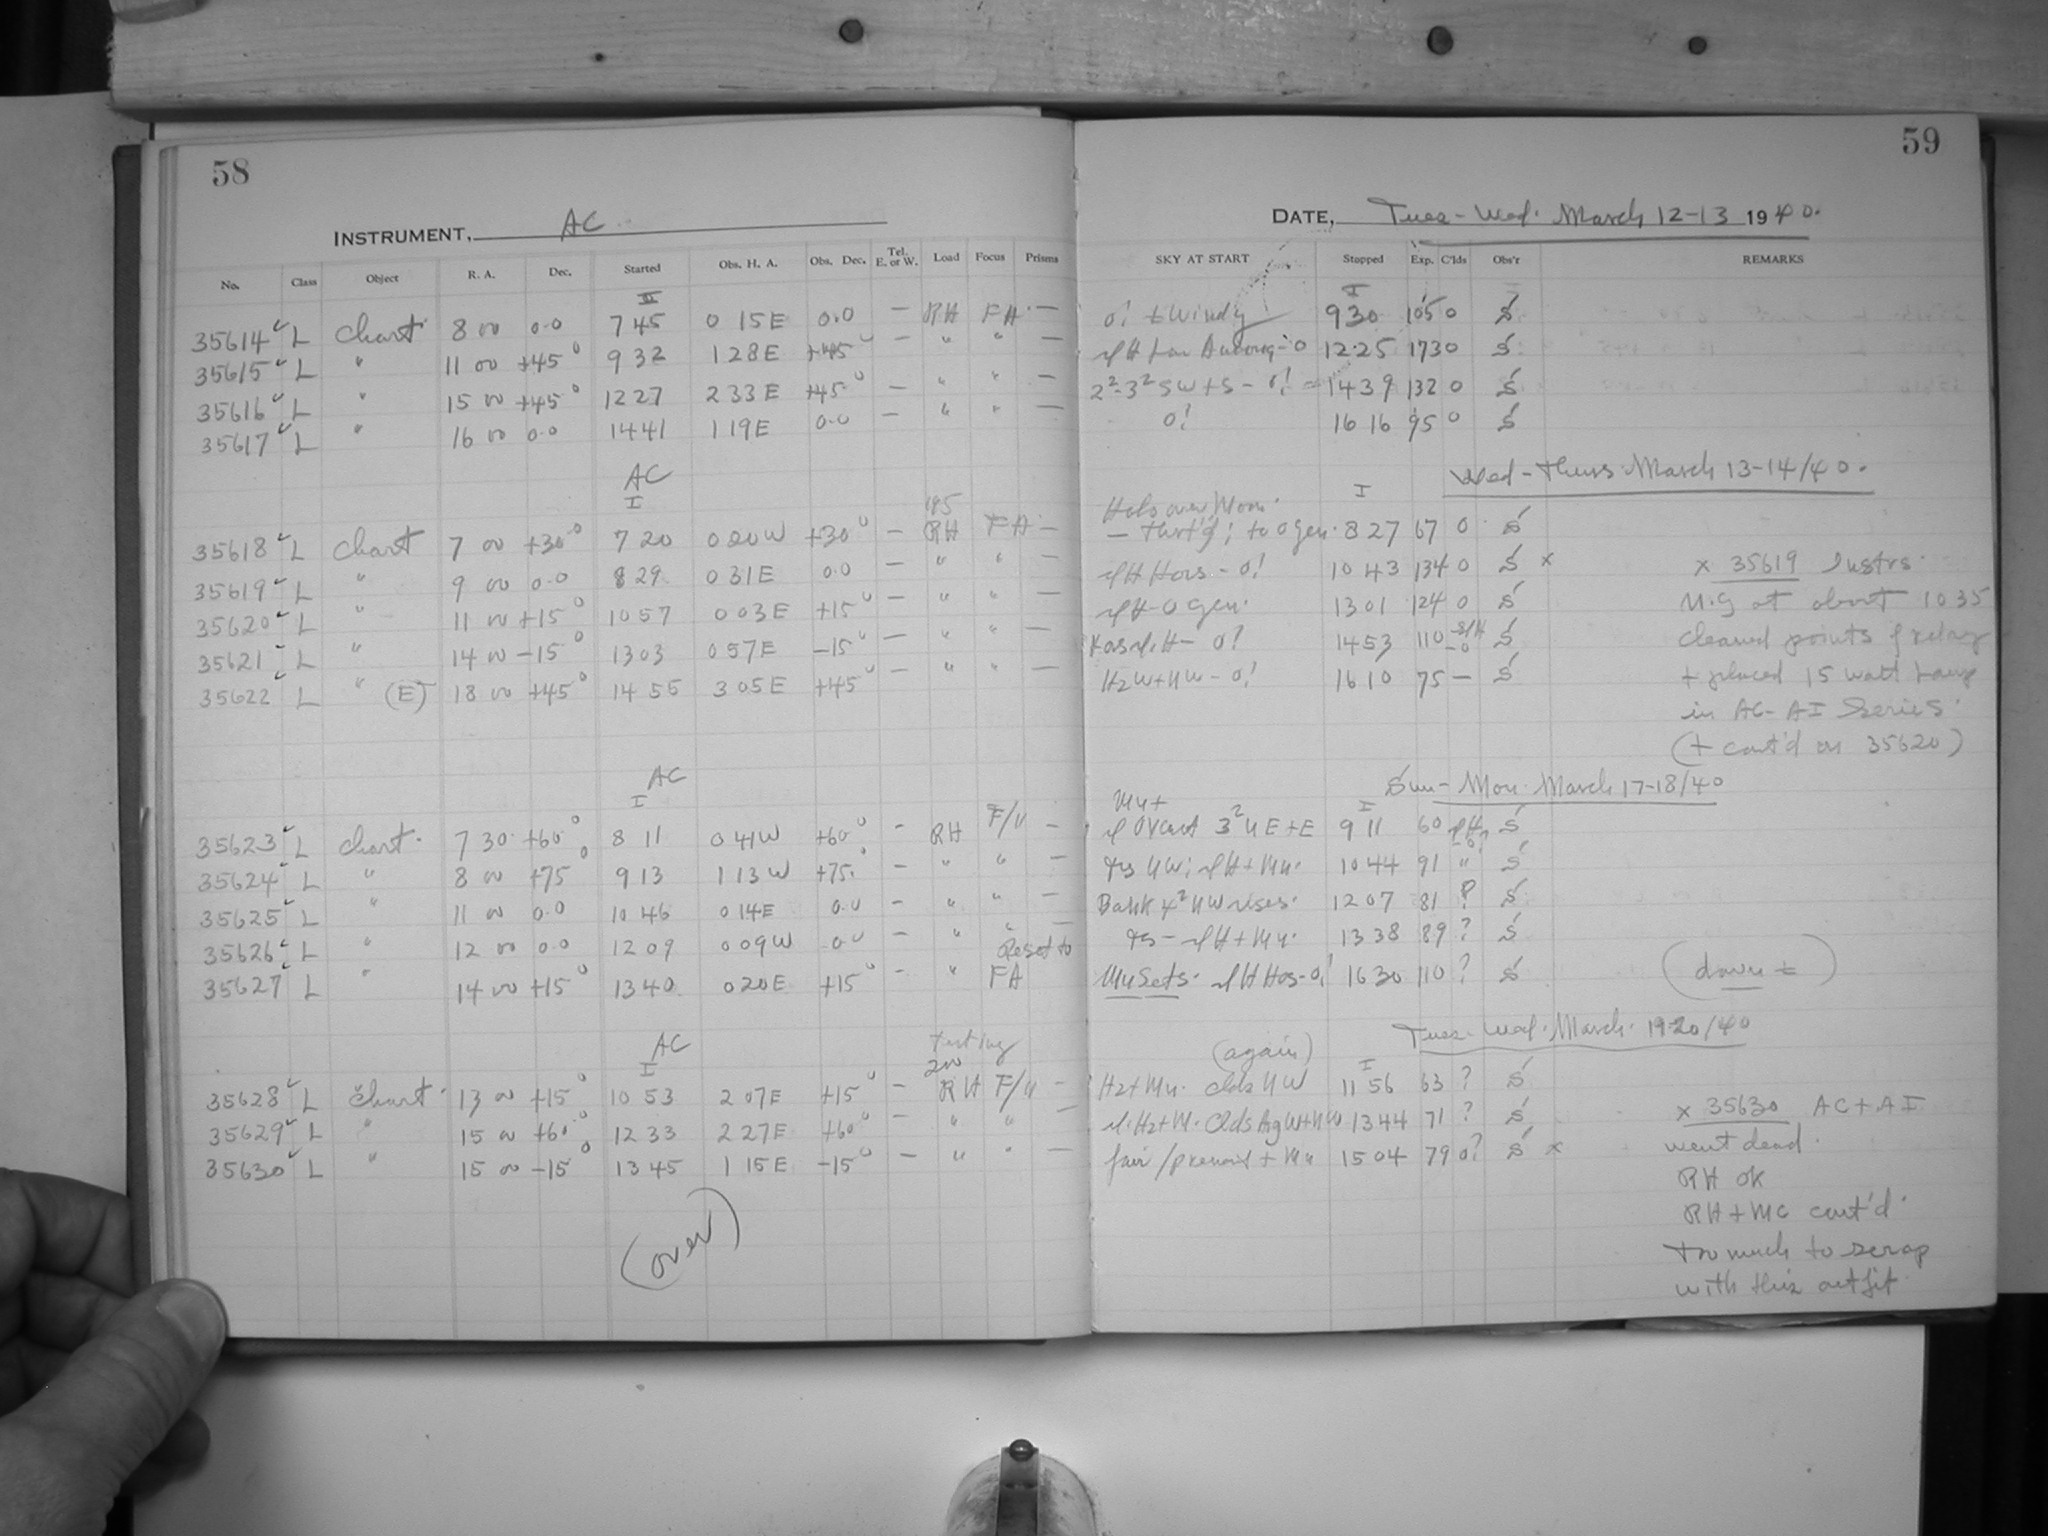 58
INSTRUMENT, AC
No. Class Object R. A. Dec. Started Obs. H. A. Obs. Dec. Tel. E. or W. Load Focus Prisms
II
35614 L Chart 8 00 0.0 7 45 0 15E 0.0 — RH FA —
35615 L " 11 00 +45° 9 32 1 28E +45° — " " —
35616 L " 15 00 +45° 12 27 2 33E +45° — " " —
35617 L " 16 00 0.0 14 41 1 19E 0.0 — " " —
AC
I
185
35618 L Chart 7 00 +30° 7 20 0 20W +30° — RH FA —
35619 L " 9 00 0.0 8 29 0 31E 0.0 — " " —
35620 L " 11 00 +15° 10 57 0 03E +15° — " " —
35621 L " 14 00 -15° 13 03 0 57E -15° — " " —
35622 L " (E) 18 00 +45° 14 55 3 05E +45° — " " —
AC
I
35623 L Chart 7 30 +60° 8 11 0 41W +60° — RH F/U —
35624 L " 8 00 +75° 9 13 1 13W +75° — " " —
35625 L " 11 00 0.0 10 46 0 14E 0.0 — " " —
35626 L " 12 00 0.0 12 09 0 09W 0.0 — " " —
Reset to
35627 L " 14 00 +15° 13 40 0 20E +15° — " FA
AC
I
testing
200
35628 L Chart 13 00 +15° 10 53 2 07E +15° — RH F/U —
35629 L " 15 00 +60° 12 33 2 27E +60° — " " —
35630 L " 15 00 -15° 13 45 1 15E -15° — " " —
(over)
59
DATE, Tues - Wed. March 12-13 1940.
SKY AT START Stopped Exp. C'lds Obs'r REMARKS
I
0! + Windy 9 30 105 0 S
12 25 173 0 S
2²-3² SW+S - 0! 14 39 132 0 S
0! 16 16 95 0 S
Wed - Thurs March 13-14/40.
I
to 0 gen. 8 27 67 0 S
- 0! 10 43 134 0 S x
0 gen. 13 01 124 0 S
- 0? 14 53 110 S
Hz W+NW - 0! 16 10 75 — S
x 35619 Instrs.
N.G at about 10 35
cleaned points of relay
+ placed 15 watt Lamp
in AC-AI Series.
(+ cont'd on 35620)
Sun - Mon. March 17-18/40
I
3² NE+E 9 11 60 S
10 44 91 " S
Bank 4² NW rises. 12 07 81 ? S
13 38 89 ? S
Mn Sets. 16 30 110 ? S
Tues - Wed. March. 19-20/40
(again)
I
Hz+Mn. Clds NW 11 56 63 ? S
13 44 71 ? S
15 04 79 0? S x
x 35630 AC+AI
went dead.
RH OK
RH+MC cont'd.
too much to scrap
with this outfit.